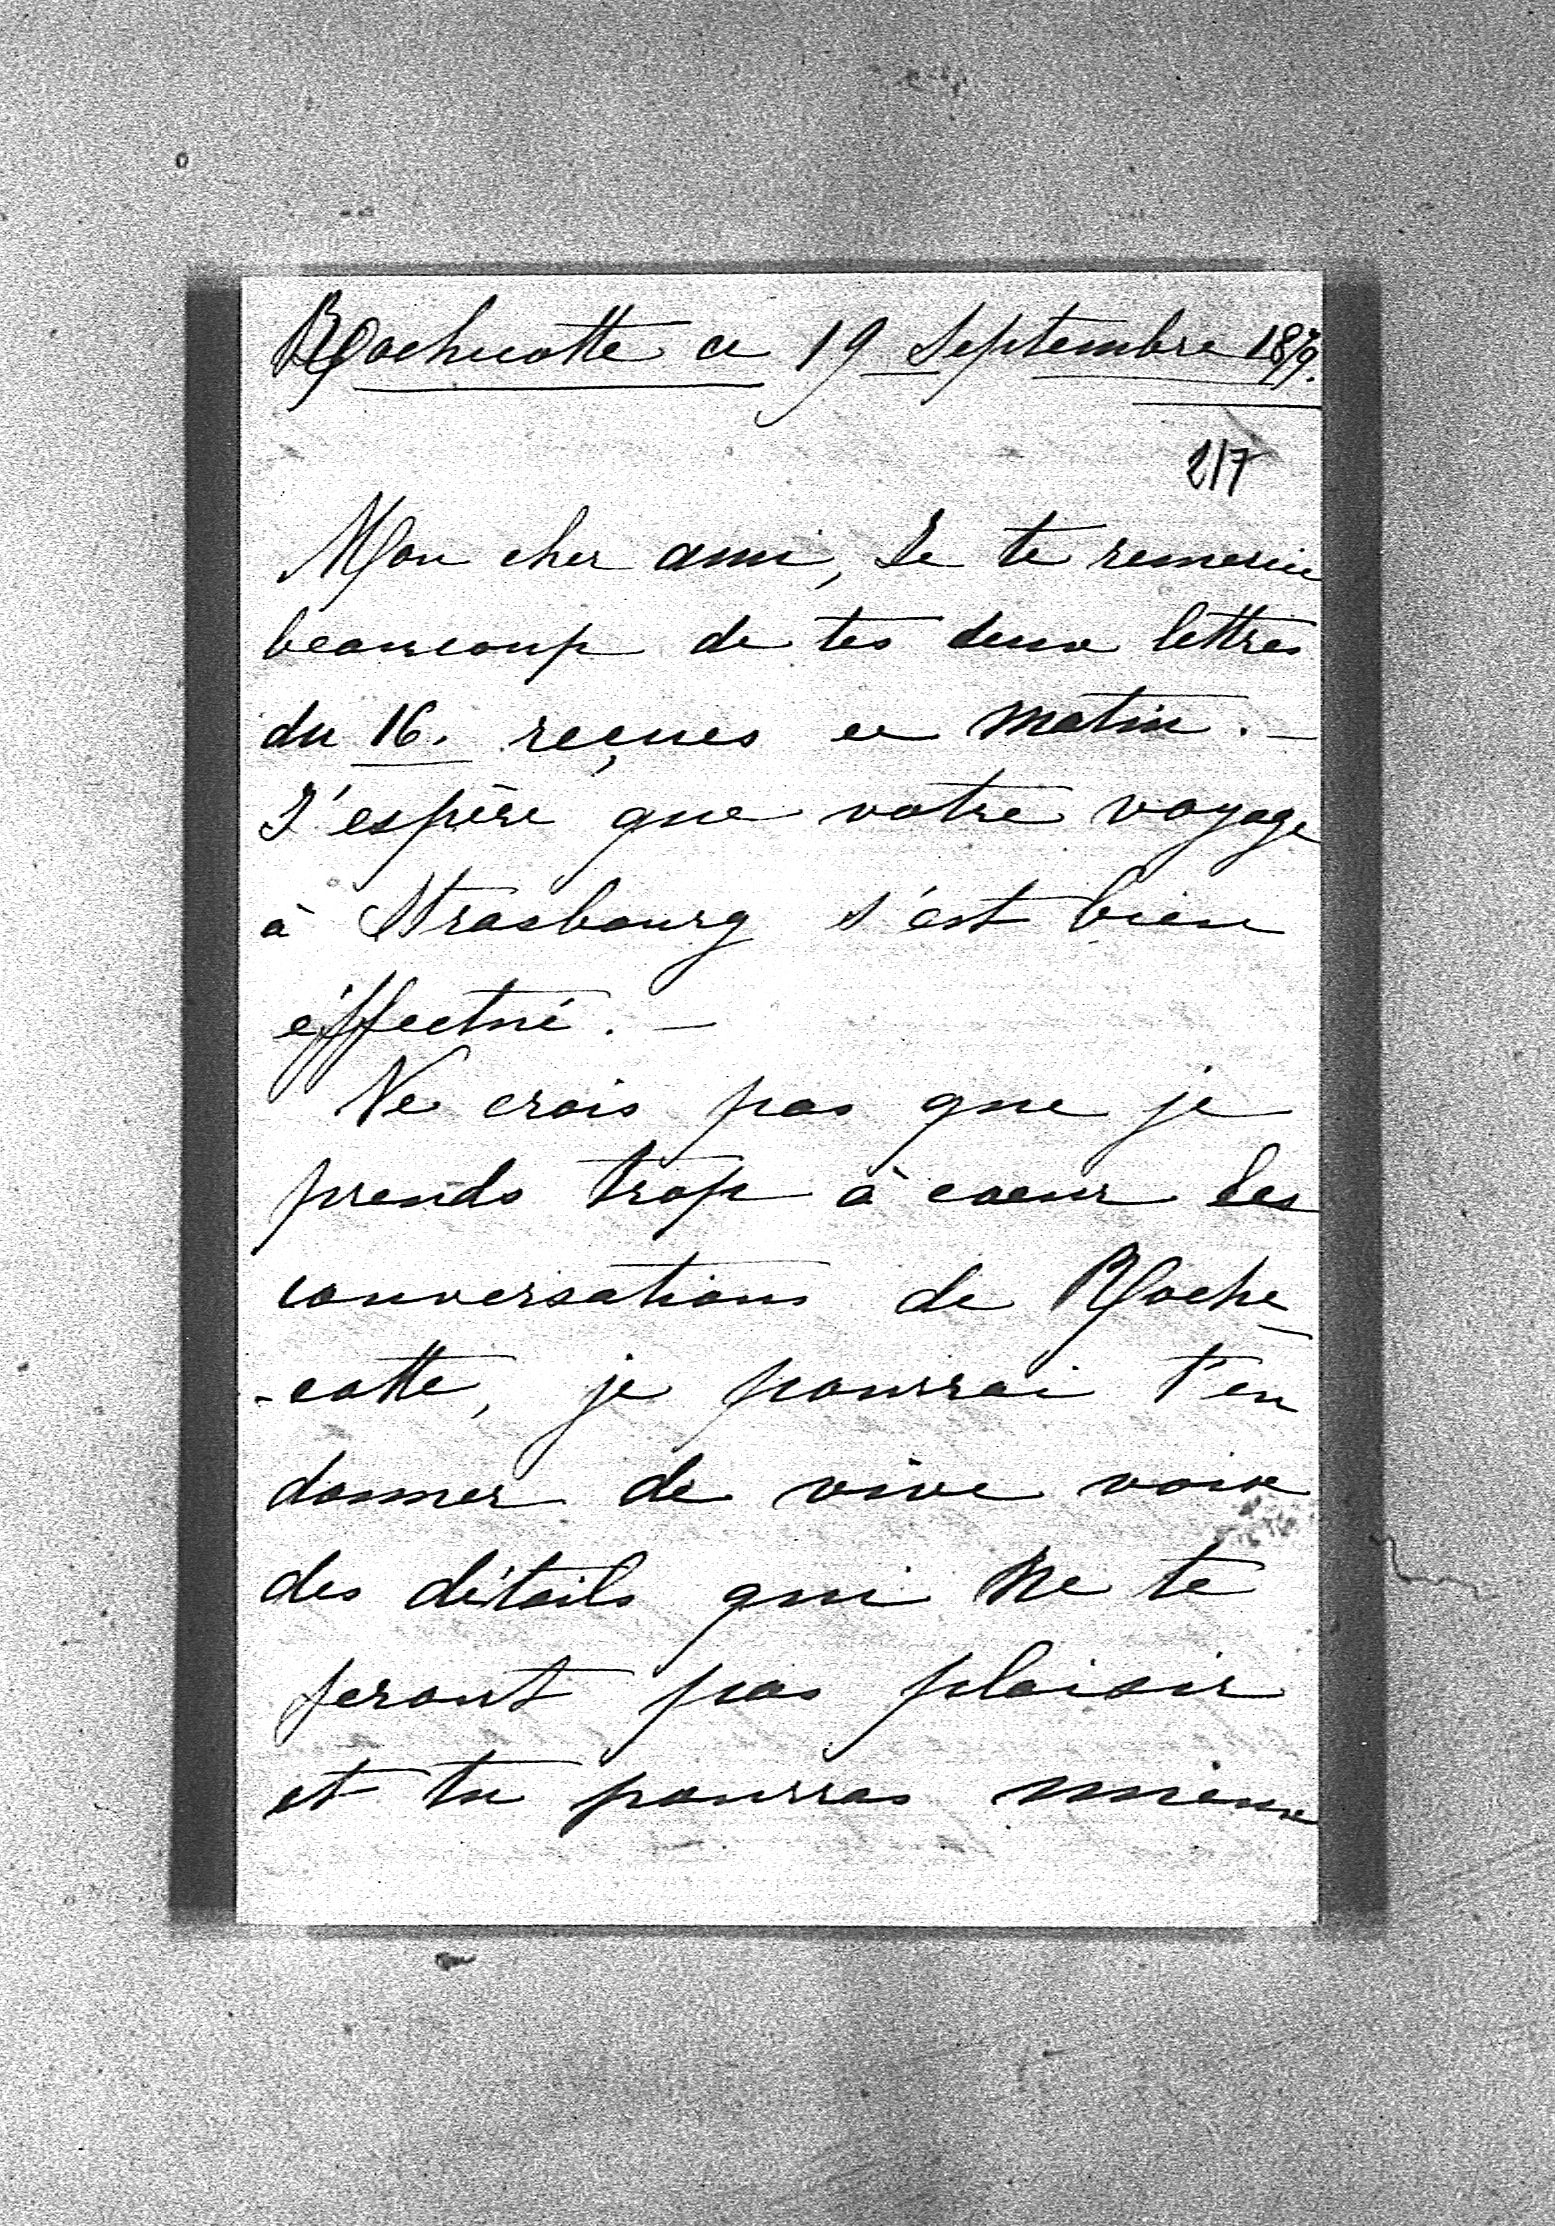 Rochecotte ce 19 Septembre 1879.
217
Mon cher ami, Je te remercie
beaucoup de tes deux lettres
du 16. reçues ce matin. –
J'espère que votre voyage
à Strasbourg s'est bien
éffectué. –
Ne crois pas que je
prends trop à coeur les
conversations de Roche-
-cotte, je pourrai t'en
donner de vive voix
des détails qui ne te
feront pas plaisir
et tu pourras mieux